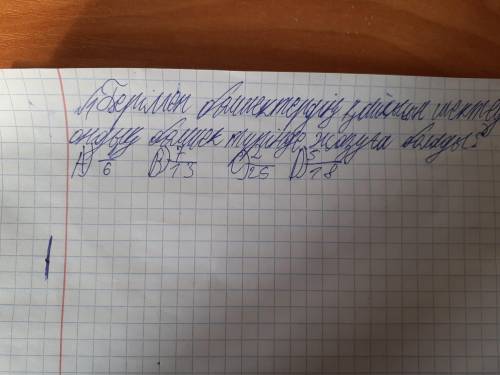 Берілген бөлшектердің қайсысын шектеу
ондық бөлшек түрінде жазуға болады?
A) 1/6 B) 7/13 C) 2/25 D) 5/18